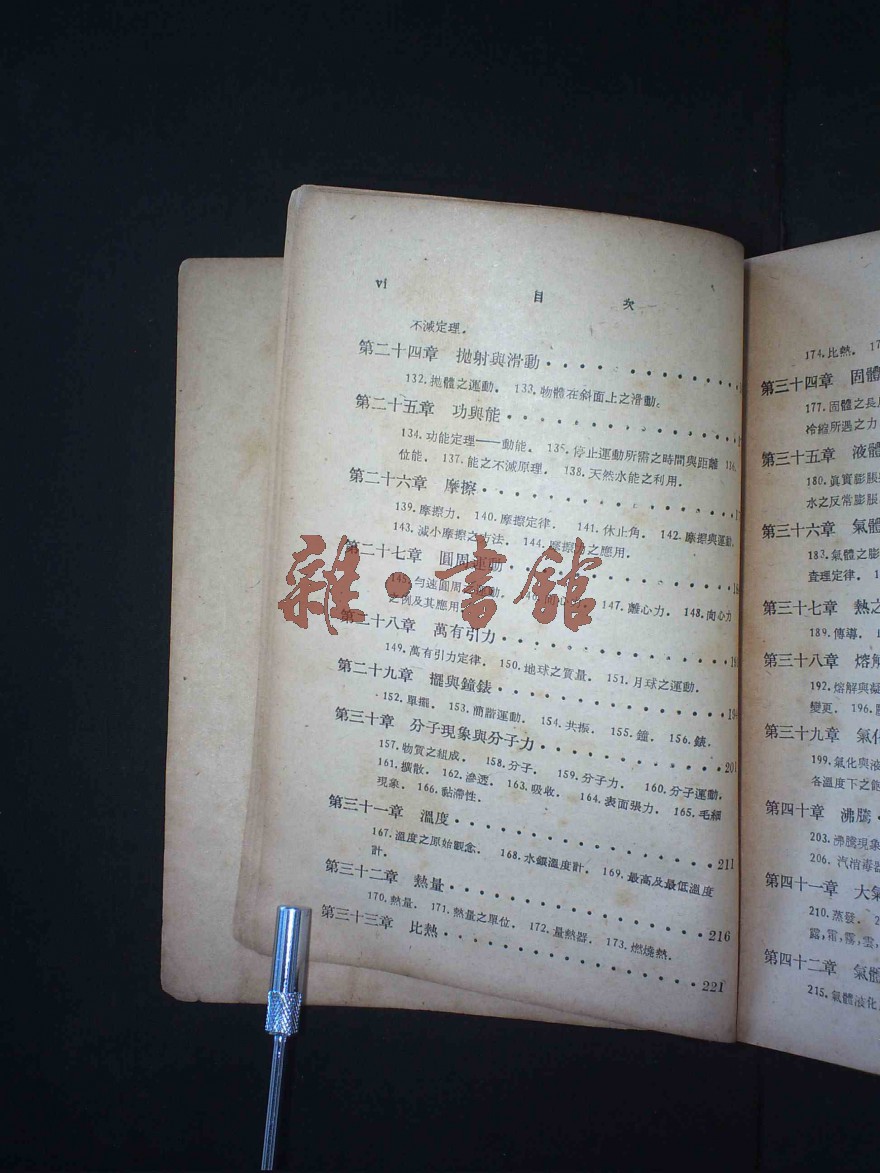 vi
目 次
不滅定理.
第二十四章 拋射與滑動
132.拋體之運動. 133.物體在斜面上之滑動.
第二十五章 功與能
134.功能定理——動能. 135.停止運動所需之時間與距離
位能. 137.能之不滅原理. 138.天然水能之利用.
第二十六章 摩擦
139.摩擦力. 140.摩擦定律. 141.休止角. 142.摩擦與運動.
143.減小摩擦之方法. 144.摩擦力之應用.
第二十七章 圓周運動
145.勻速圓周之運動. 147.離心力. 148.向心力
之例及其應用
第二十八章 萬有引力
149.萬有引力定律. 150.地球之質量. 151.月球之運動.
第二十九章 擺與鐘錶
152.單擺. 153.簡諧運動. 154.共振. 155.鐘. 156.錶.
第三十章 分子現象與分子力 201
157.物質之組成. 158.分子. 159.分子力. 160.分子運動.
161.擴散. 162.滲透. 163.吸收. 164.表面張力. 165.毛細
現象. 166.黏滯性.
第三十一章 溫度 211
167.溫度之原始觀念. 168.水銀溫度計. 169.最高及最低溫度
計.
第三十二章 熱量 216
170.熱量. 171.熱量之單位. 172.量熱器. 173.燃燒熱.
第三十三章 比熱 221
雜·書館
174.比熱.
第三十四章 固體
177.固體之長
冷縮所遇之力
第三十五章 液體
180.眞實膨脹
水之反常膨脹
第三十六章 氣體
183.氣體之膨
查理定律.
第三十七章 熱之
189.傳導.
第三十八章 熔解
192.熔解與凝
變更. 196.
第三十九章 氣化
199.氣化與液
各溫度下之飽
第四十章 沸騰
203.沸騰現象
206.汽消毒器
第四十一章 大氣
210.蒸發.
露,霜,霧,雲,
第四十二章 氣體
215.氣體液化.